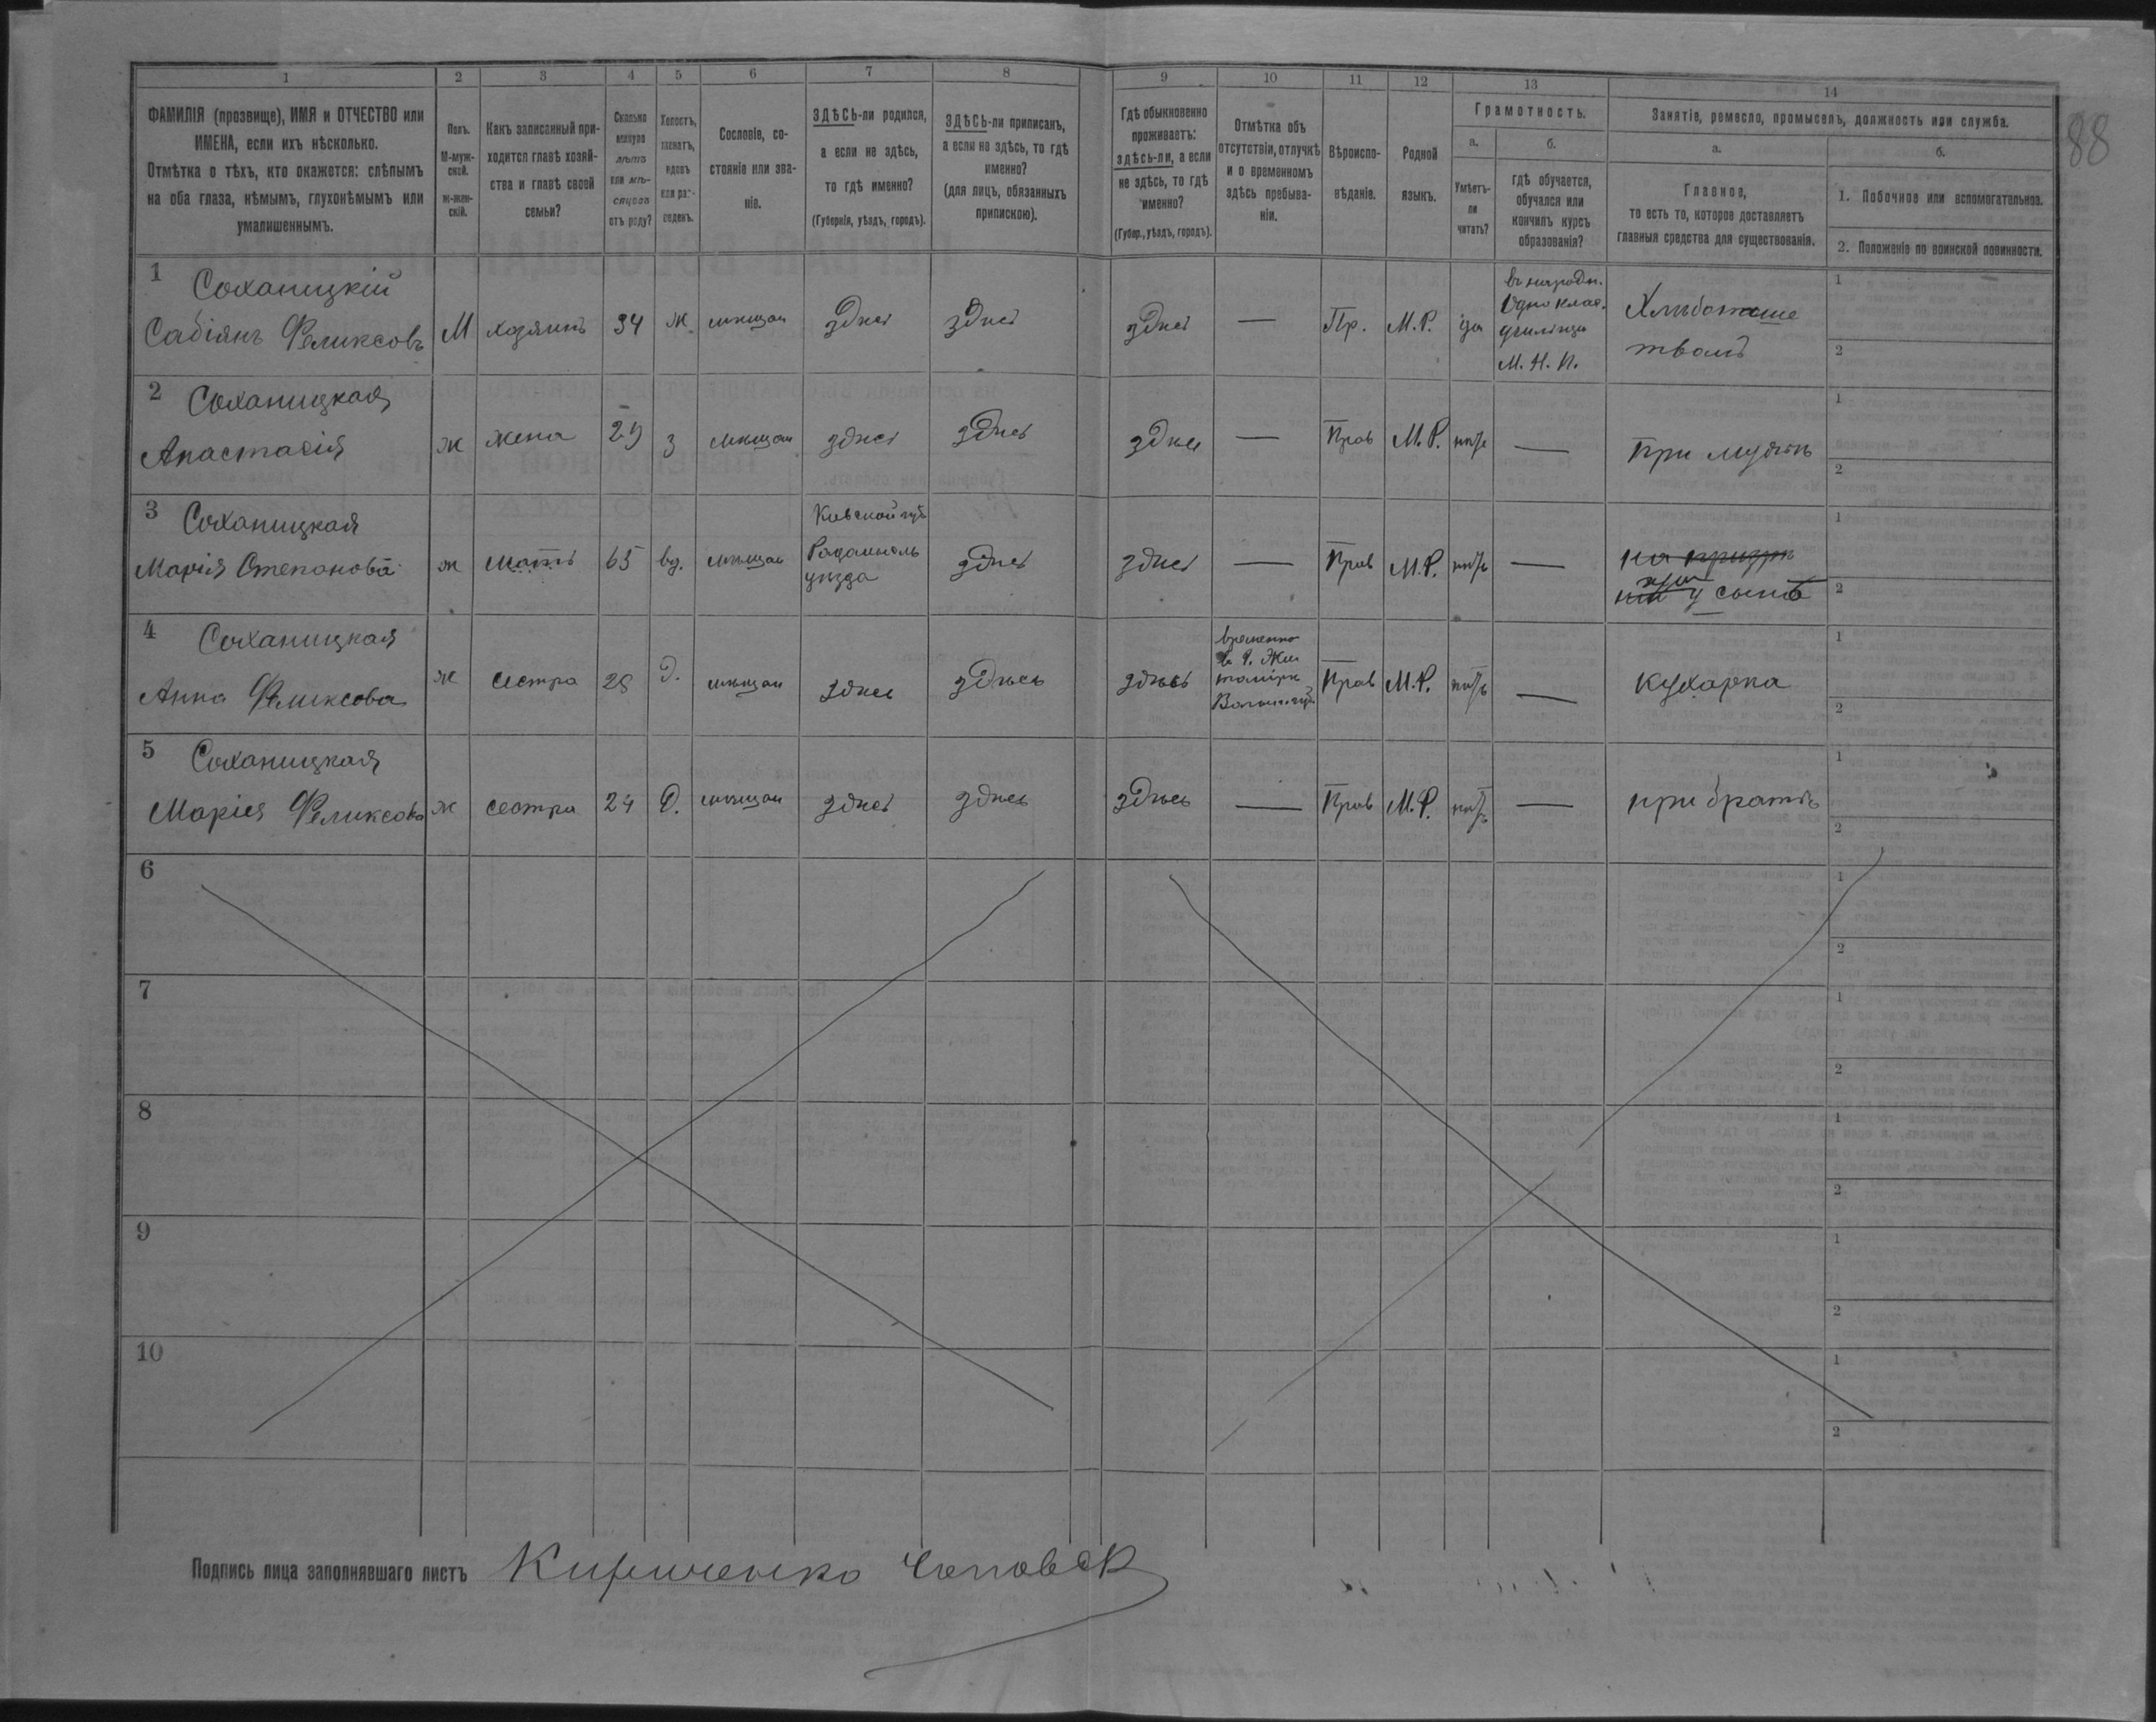 1 2 3 4 5 6 7 8 9 10 11 12 13 14
88
ФАМИЛІЯ (прозвище), ИМЯ и ОТЧЕСТВО или
ИМЕНА, если ихъ нѣсколько.
Отмѣтка о тѣхъ, кто окажется: слѣпымъ
на оба глаза, нѣмымъ, глухонѣмымъ или
умалишеннымъ.
Полъ.
М-муж-
ской.
Ж-жен-
скій.
Какъ записанный при-
ходится главѣ хозяй-
ства и главѣ своей
семьи?
Сколько
минуло
лѣтъ
или мѣ-
сяцевъ
отъ роду?
Холостъ,
женатъ,
вдовъ
или раз-
веденъ.
Сословіе, со-
стояніе или зва-
ніе.
ЗДѢСЬ-ли родился,
а если не здѣсь,
то гдѣ именно?
(Губернія, уѣздъ, городъ).
ЗДѢСЬ-ли приписанъ,
а если не здѣсь, то гдѣ
именно?
(для лицъ, обязанныхъ
припискою).
Гдѣ обыкновенно
проживаетъ:
здѣсь-ли, а если
не здѣсь, то гдѣ
именно?
(Губер., уѣздъ, городъ).
Отмѣтка объ
отсутствіи, отлучкѣ
и о временномъ
здѣсь пребыва-
ніи.
Вѣроиспо-
вѣданіе.
Родной
языкъ.
Грамотность.
а.
Умѣетъ-
ли
читать?
б.
гдѣ обучается,
обучался или
кончилъ курсъ
образованія?
Занятіе, ремесло, промыселъ, должность или служба.
а.
Главное,
то есть то, которое доставляетъ
главныя средства для существованія.
б.
1. Побочное или вспомогательное.
2. Положеніе по воинской повинности.
1 Соханицкій
Сабіянъ Феликсовъ
М хозяинъ 34 ж. мѣщан здѣсь здѣсь здѣсь — Пр. М.Р. да
въ народн.
одноклас.
училищѣ
М.Н.П.
Хлѣбопаше
твомъ
1
2
2 Соханицкая
Анастасія
ж жена 29 з мѣщан здѣсь здѣсь здѣсь — Прав М.Р. нѣтъ — При мужѣ
1
2
3 Соханицкая
Марія Степанова
ж мать 65 вд. мѣщан
Кіевской губ
Радомысль
уѣзда
здѣсь здѣсь — Прав М.Р. нѣтъ —
у сына
1
2
4 Соханицкая
Анна Феликсова
ж сестра 28 Д. мѣщан здѣсь здѣсь здѣсь
временно
в г. Жи
томірѣ
Волын. губ
Прав М.Р. нѣтъ — кухарка
1
2
5 Соханицкая
Марія Феликсова
ж сестра 24 Д. мѣщан здѣсь здѣсь здѣсь — Прав М.Р. нѣтъ — при братѣ
1
2
6
1
2
7
1
2
8
1
2
9
1
2
10
1
2
Подпись лица заполнявшаго листъ